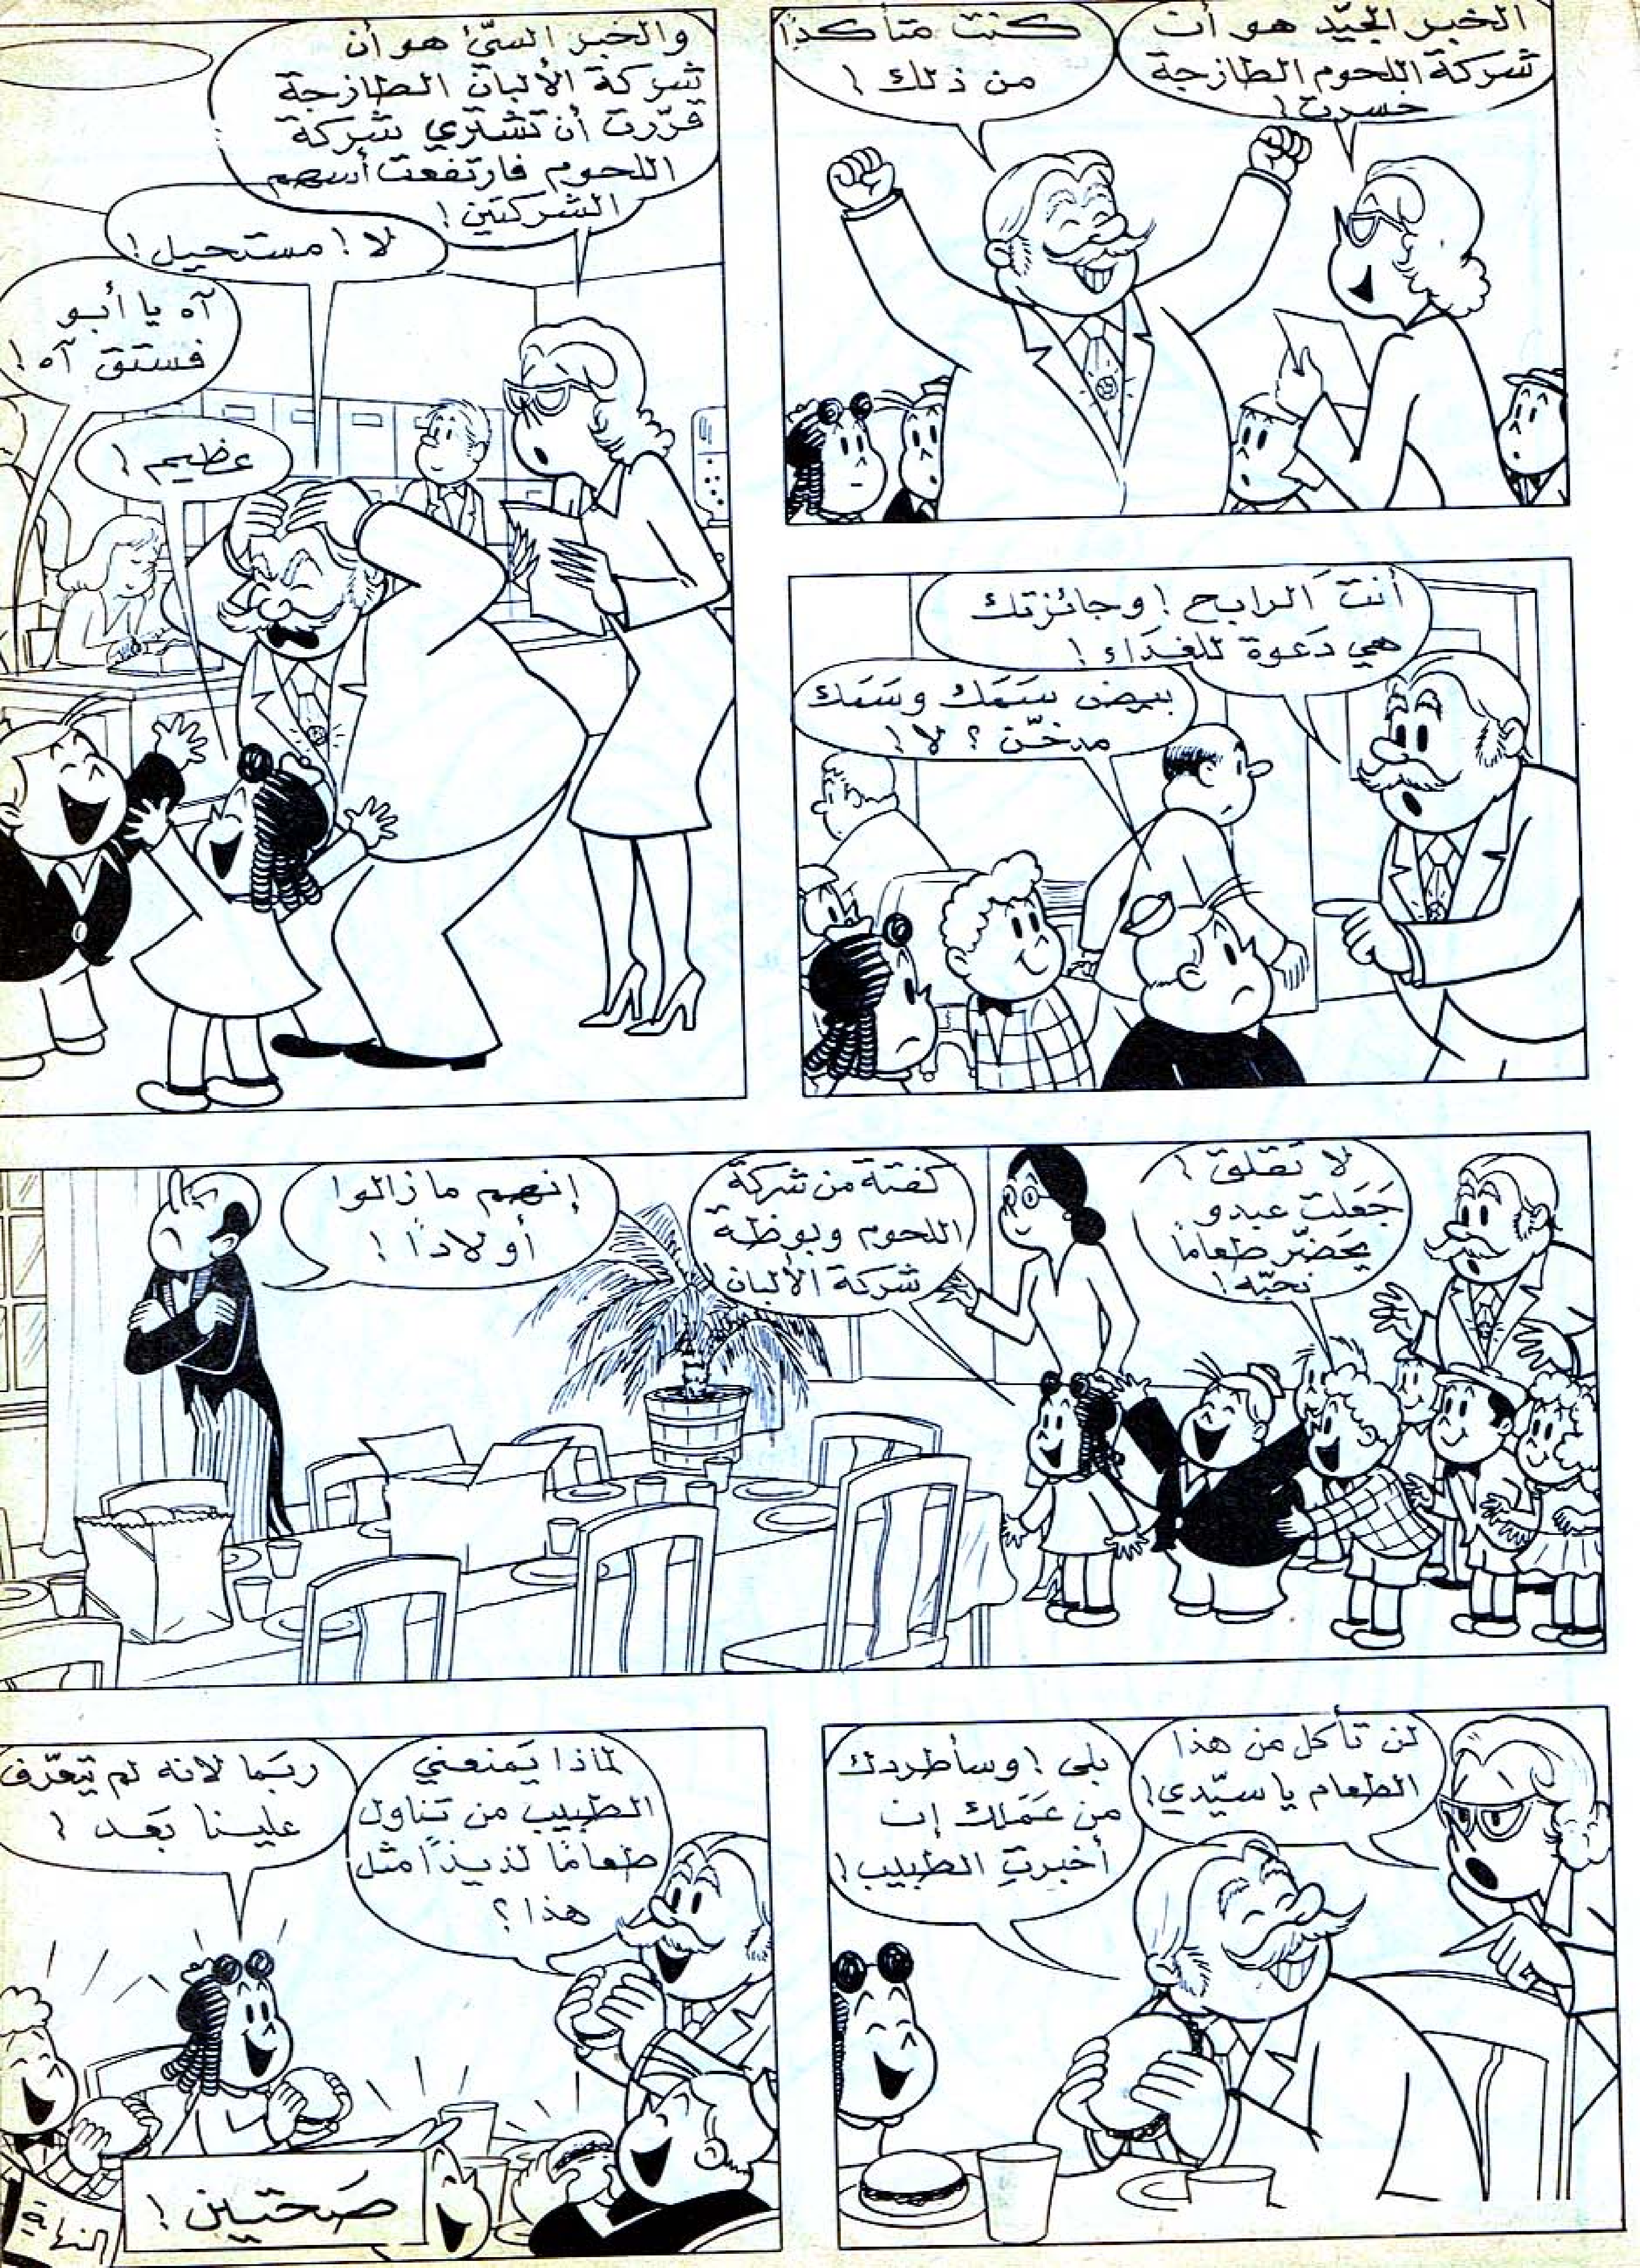 الخبر الجيّد هو أن
شركة اللحوم الطازجة
خسرت!
كنت متأكداً
من ذلك!
والخبر السيّئ هو أن
شركة الألبان الطازجة
قرّرت أن تشتري شركة
اللحوم فارتفعت أسهم
الشركتين!
لا! مستحيل!
آه يا أبو
فستق آه!
عظيم!
أنتَ الرابح! وجائزتك
هي دَعوة للغدَاء!
بيض سَمَك وسَمَك
مدخّن؟ لا!
لا تَقلق!
جَعَلت عبدو
يحَضّر طعاماً
نحبّه!
كفتة من شركة
اللحوم وبوظة
شركة الألبان!
إنهم مازالوا
أولاداً!
لن تأكل من هذا
الطعام يا سيّدي!
بلى! وسأطردك
من عَمَلك إن
أخبرتِ الطبيب!
لماذا يَمنعني
الطبيب من تناول
طعامًا لذيذاً مثل
هذا؟
ربَما لانه لم يتعرّف
علينا بَعد!
صَحتين!
النهاية